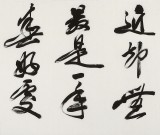 近却無
最是一年
春好處